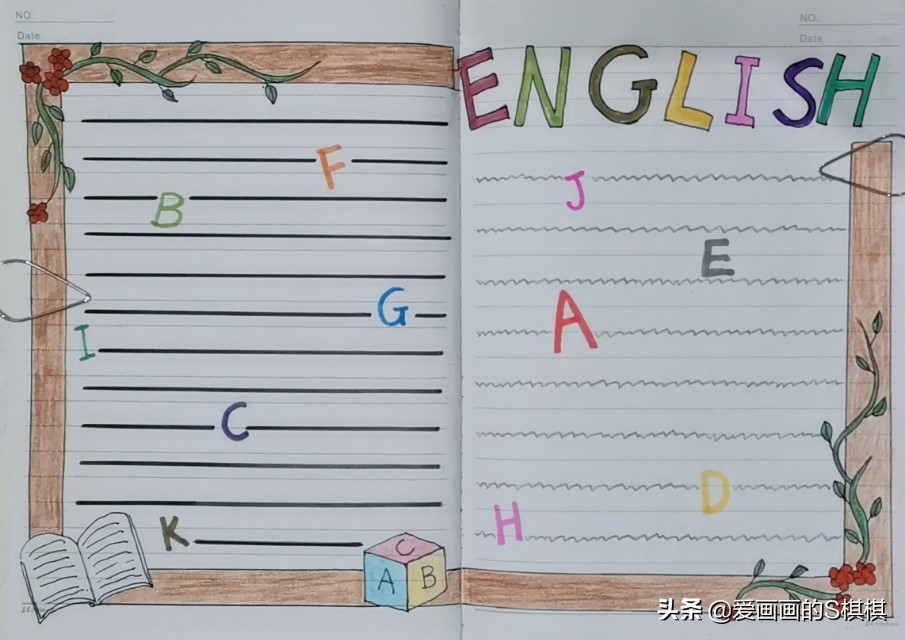 NO.
Date
NO.
Date
ENGLISH
F
B
G
I
C
K
C
A B
J
E
A
D
H
头条 @爱画画的S棋棋